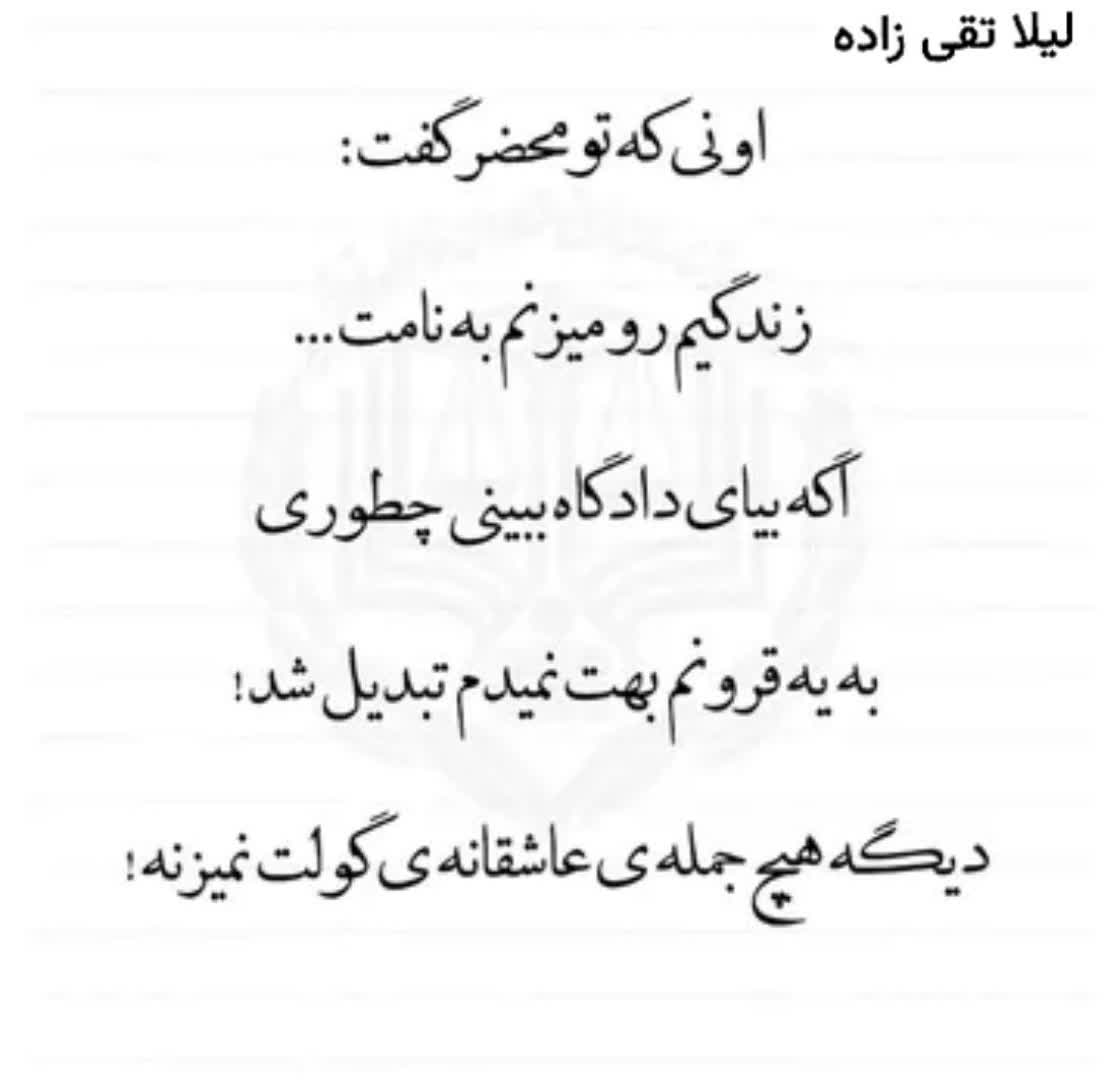 لیلا تقی زاده
اونی که تو محضر گفت:
زندگیم رو میزنم به نامت...
اگه بیای دادگاه ببینی چطوری
به یه قرونم بهت نمیدم تبدیل شد!
دیگه هیچ جمله ی عاشقانه ی گولت نمیزنه!